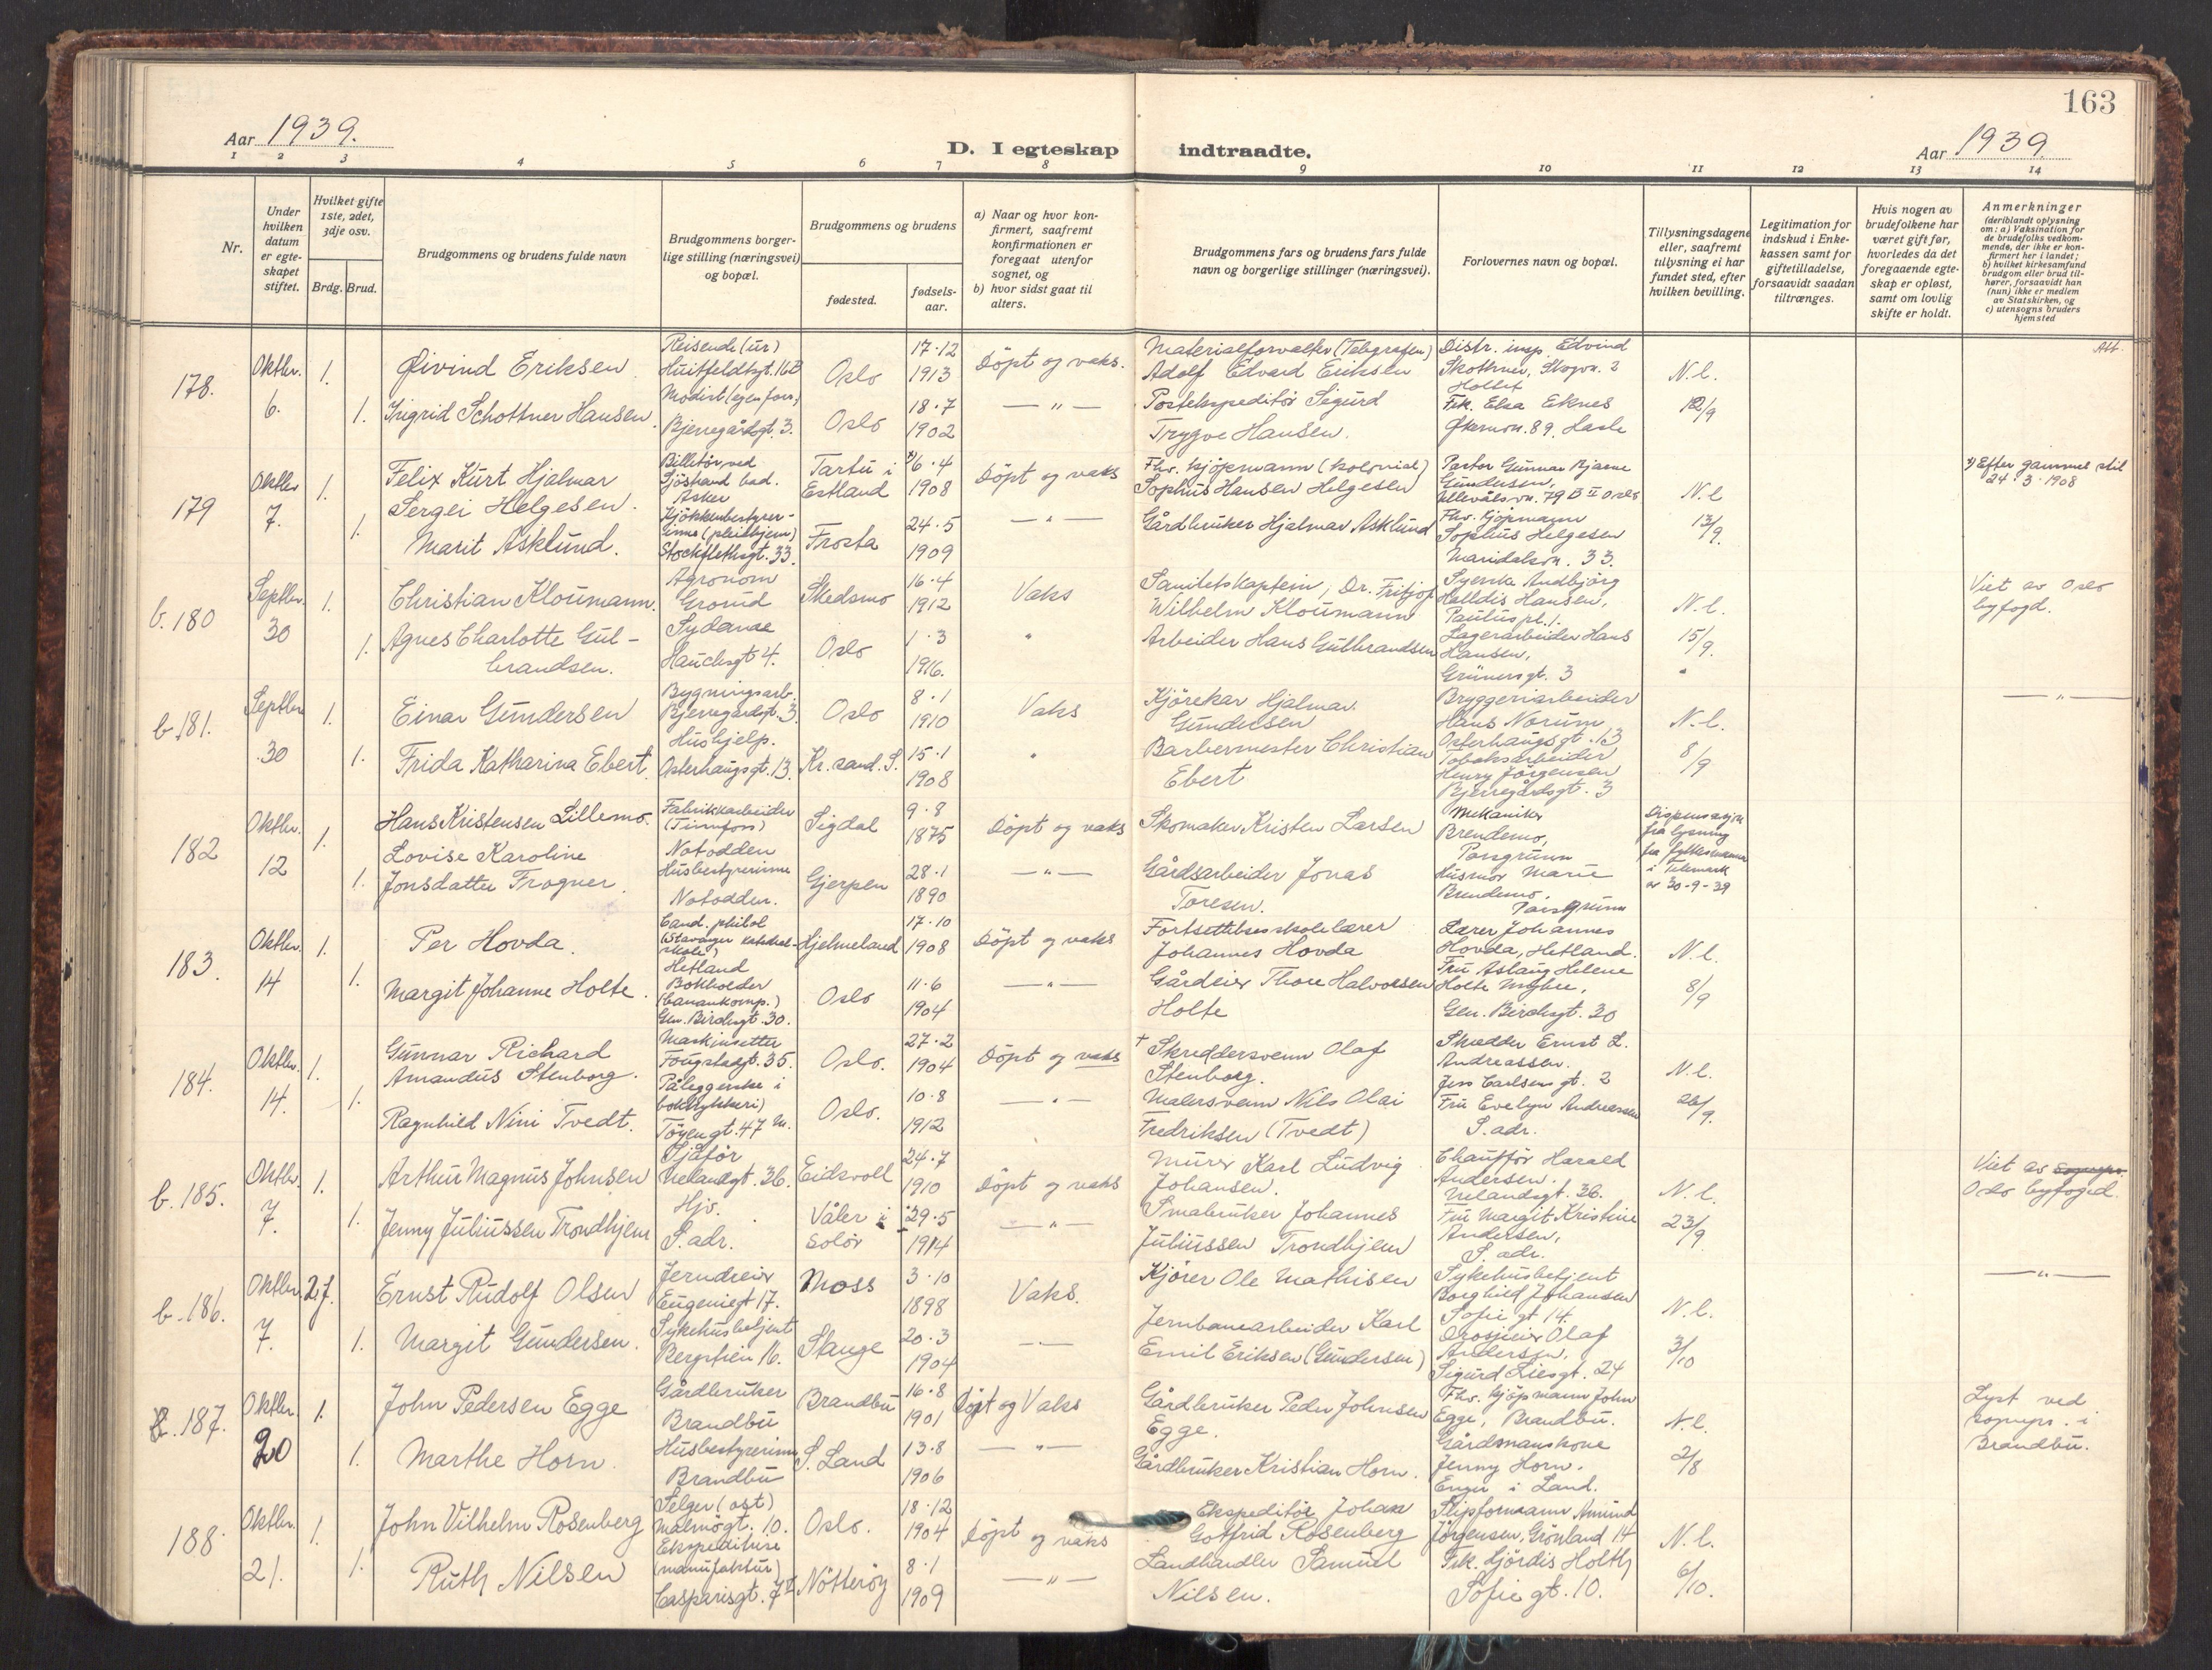 163
Aar 1939.
D. I egteskap indtraadte.
Aar 1939
1 2 3 4 5 6 7 8 9 10 11 12 13 14
Nr.
Under hvilken datum er egteskapet stiftet.
Hvilket gifte 1ste, 2det, 3dje osv.
Brdg. Brud.
Brudgommens og brudens fulde navn
Brudgommens borgerlige stilling (næringsvei) og bopæl.
Brudgommens og brudens
fødested.
fødselsaar.
a) Naar og hvor konfirmert, saafremt konfirmationen er foregaat utenfor sognet, og
b) hvor sidst gaat til alters.
Brudgommens fars og brudens fars fulde navn og borgerlige stillinger (næringsvei).
Forlovernes navn og bopæl.
Tillysningsdagene eller, saafremt tillysning ei har fundet sted, efter hvilken bevilling.
Legitimation for indskud i Enkekassen samt for giftetilladelse, forsaavidt saadan tiltrænges.
Hvis nogen av brudefolkene har været gift før, hvorledes da det foregaaende egteskap er opløst, samt om lovlig skifte er holdt.
Anmerkninger
(deriblandt oplysning om: a) Vaksination for de brudefolks vedkommende, der ikke er konfirmert her i landet; b) hvilket kirkesamfund brudgom eller brud tilhører, forsaavidt han (hun) ikke er medlem av Statskirken, og c) utensogns bruders hjemsted
178. Oktbr. 6. 1. Øivind Eriksen Reisende (ur) Huitfeldtsgt. 16B Oslo 17.12 1913 Döpt og vaks. Materialforvalter (Telegrafen) Adolf Edvard Eriksen Distr. insp. Edvind Skothner, Skogvn. 2 N.l. 12/9
1. Ingrid Schottner Hansen. Modist (egen forr.) Bjerregårdsgt. 3. Oslo 18.7 1902 — " — Postekspeditör Sigurd Trygve Hansen. Frk. Elsa Eknes Økernvn. 89. Hasle
179 Oktbr 7. 1. Felix Kurt Hjalmar Sergei Helgesen. Billetör ved Sjöstrand bad. Asker Tartu i Estland x) 6.4 1908 Döpt og vaks Fhv. kjöpmann (kolonial) Sophus Hansen Helgesen Pastor Gunnar Bjarne Gundersen, Ullevålsvn. 79 B II Oslo N.l 13/9. x) Efter gammel stil 24.3.1908
1. Marit Asklund. Kjökkenbestyrerinne (pleiehjem) Stockflethsgt. 33. Frosta 24.5 1909 — " — Gårdbruker Hjalmar Asklund Fhv. kjöpmann Sophus Helgesen Maridalsvn. 33.
b. 180 Septbr. 30 1. Christian Kloumann. Agronom Grorud Skedsmo 16.4 1912 Vaks Sanitetskaptein, Dr. Fritjof Wilhelm Kloumann Syerske Andbjörg Halldis Hansen, Pauluspl. 1. N.l. 15/9. Viet av Oslo byfogd.
1. Agnes Charlotte Gulbrandsen. Sydame Hauchsgt 4. Oslo 1.3 1916. " Arbeider Hans Gulbrandsen Lagerarbeider Hans Hansen, Grünersgt. 3 "
b.181. Septbr 30 1. Einar Gundersen Bygningsarb. Bjerregårdsgt. 3. Oslo 8.1 1910 Vaks Kjörekar Hjalmar Gundersen Bryggeriarbeider Hans Norum Osterhaugsgt. 13 N.l. 8/9 — " —
1. Frida Katharina Ebert. Hushjelp. Osterhaugsgt. 13. Kr.sand. S. 15.1 1908 " Barbermester Christian Ebert Tobaksarbeider Henry Jörgensen Bjerregårdsgt. 3
182 Oktbr. 12 1. Hans Kristensen Lillemo. Fabrikkarbeider (Tinnfoss) Notodden Sigdal 9.8 1875 Döpt og vaks Skomaker Kristen Larsen Mekaniker Brendemo, Porsgrunn Dispensasjon fra lysning fra fylkesmannen i Telemark av 30-9-39
1. Lovise Karoline Jonsdatter Frogner. Husbestyrerinne Notodden. Gjerpen 28.1 1890 — " — Gårdsarbeider Jonas Toresen. Husmor Marie Brendemo, Porsgrunn
183. Oktbr. 14 1. Per Hovda. Cand. philol (Stavanger katedralskole) Hetland Hjelmeland 17.10 1908 Döpt og vaks Fortsettelsesskolelærer Johannes Hovda Lærer Johannes Hovda, Hetland. N.l. 8/9
1. Margit Johanne Holte. Bokholder (banankomp.) Gen. Birchsgt. 30. Oslo 11.6 1904 — " — Gårdeier Thore Halvorsen Holte Fru Aslaug Helene Holte Myhre, Gen. Birchsgt. 30
184. Oktbr. 14. 1. Gunnar Richard Amandus Stenborg. Maskinsetter Fougstadgt. 35. Oslo. 27.2 1904 Döpt og vaks † Skreddersvenn Olaf Stenborg. Skredder Ernst L. Andreassen. Jens Carlsens gt. 2 N.l. 26/9.
1. Ragnhild Nini Tvedt. Påleggerske i boktrykkeri) Töyengt. 47 Oslo. 10.8 1912 — " — Malersvenn Nils Olai Fredriksen (Tvedt) Fru Evelyn Andreassen S. adr.
b. 185. Oktbr. 7. 1. Arthur Magnus Johnsen Sjåför Uelandsgt. 36. Eidsvoll 24.7 1910 Döpt og vaks Murer Karl Ludvig Johansen. Chauffør Harald Andersen. Uelandsgt. 36. N.l. 23/9 Viet av Oslo byfoged.
1. Jenny Juliussen Trondhjem Hjv. S. adr. Våler i Solör 29.5 1914 — " — Småbruker Johannes Juliussen Trondhjem Fru Margit Kristine Andersen, S. adr.
b.186. Oktbr 7. 2 f. Ernst Rudolf Olsen Jerndreier Eugeniegt 17. Moss 3.10 1898 Vaks. Kjörer Ole Mathisen Sykehusbetjent Borghild Johansen Sofie gt 14. N.l. 3/10 — " —
1. Margit Gundersen. Sykehusbetjent Bergstien 16. Stange 20.3 1904 — " — Jernbanearbeider Karl Emil Eriksen (Gundersen) Drosjeeier Olaf Andersen. Sigurd Liesgt. 24
187. Oktbr. 20 1. John Pedersen Egge Gårdbruker Brandbu Brandbu 16.8 1901 Döpt og Vaks Gårdbruker Peder Johnsen Egge. Fhv. kjöpmann John Egge, Brandbu. N.l. 2/8 Lyst ved sognepr. i Brandbu.
1. Marthe Horn. Husbestyrerinne Brandbu S. Land 13.8 1906 — " — Gårdbruker Kristian Horn. Gårdmannskone Jenny Horn. Enger i Land.
188. Oktbr. 21. 1. John Vilhelm Rosenberg Selger (ost) Malmögt. 10. Oslo. 18.12 1904 Döpt og vaks Ekspeditör Johan Gotfrid Rosenberg Slipformann Amund Jörgensen, Grönland 14 N.l. 6/10.
1. Ruth Nilsen Ekspeditrise (manufaktur) Casparisgt. 7 II Nötteröy 8.1 1909 — " — Landhandler Samuel Nilsen. Frk. Hjördis Holth Sofie gt. 10.